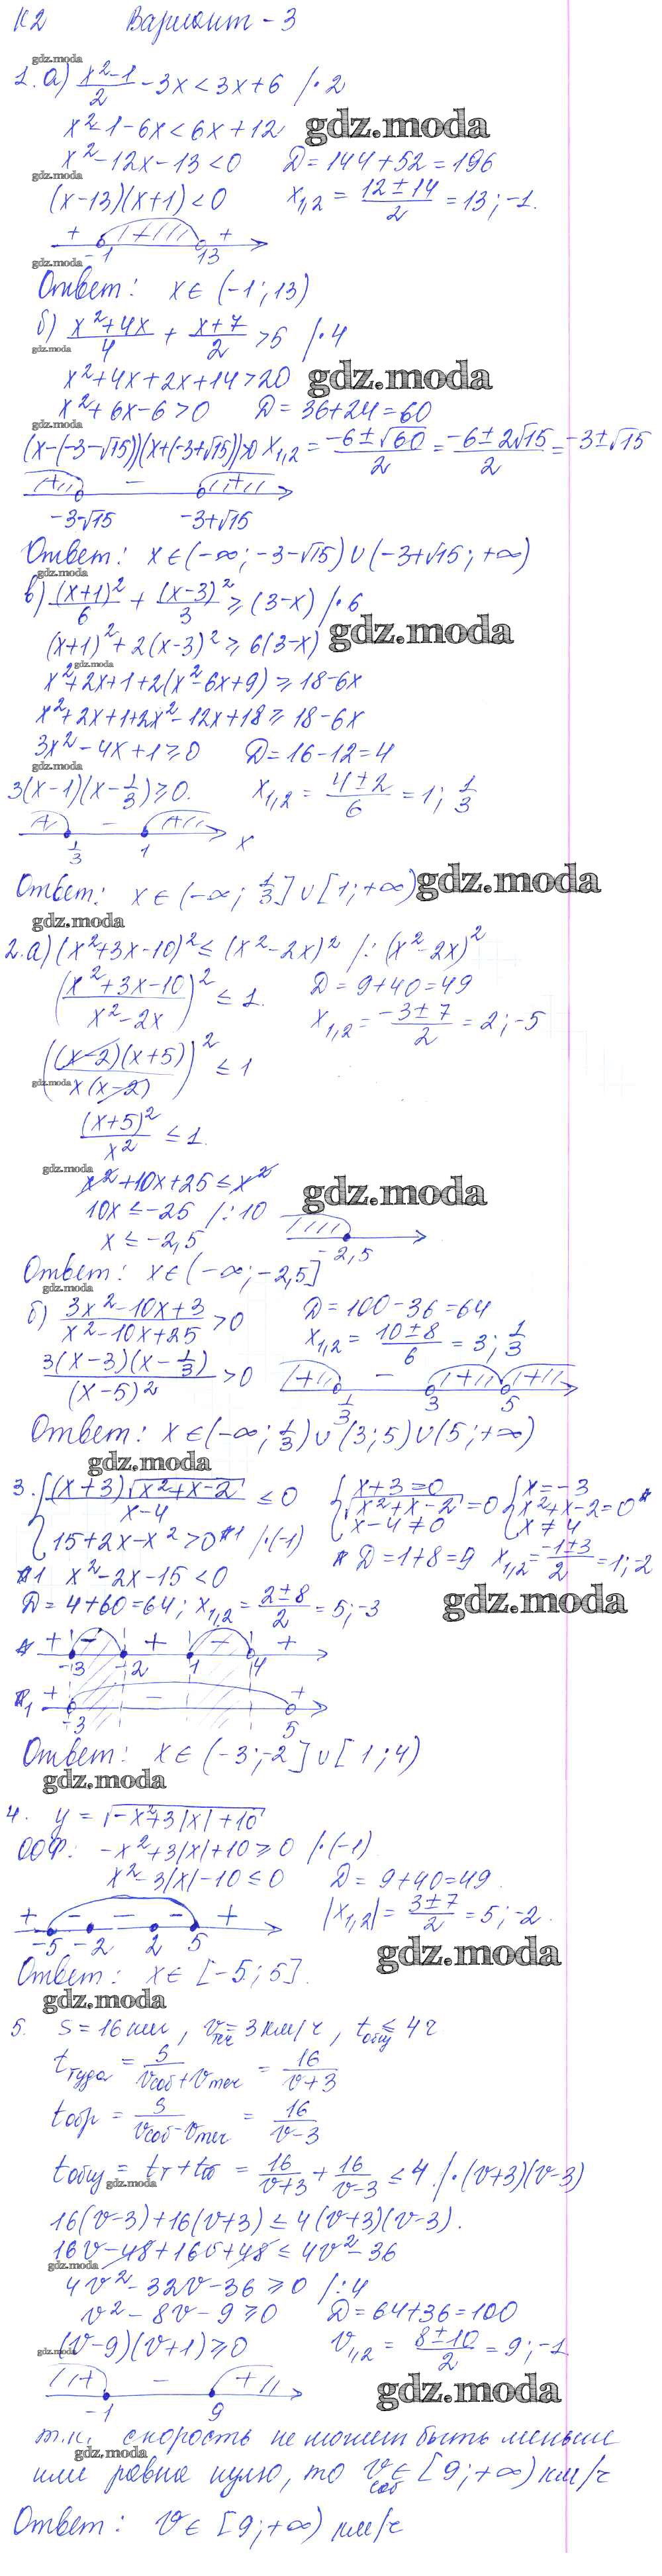 К2 Вариант - 3
gdz.moda
1. а) (x²-1)/2 - 3x < 3x + 6 /·2
x²-1-6x < 6x+12 gdz.moda
x²-12x-13 < 0 D = 144+52 = 196
gdz.moda
(x-13)(x+1) < 0 x₁,₂ = (12±14)/2 = 13; -1.
+ - +
-1 13
gdz.moda
Ответ: x ∈ (-1; 13)
б) (x²+4x)/4 + (x+7)/2 > 5 /·4
gdz.moda
x²+4x+2x+14 > 20 gdz.moda
x²+6x-6 > 0 D = 36+24 = 60
gdz.moda
(x-(-3-√15))(x+(-3+√15))>0 x₁,₂ = (-6±√60)/2 = (-6±2√15)/2 = -3±√15
+ - +
-3-√15 -3+√15
Ответ: x ∈ (-∞; -3-√15) ∪ (-3+√15; +∞)
gdz.moda
в) (x+1)²/6 + (x-3)²/3 ≥ (3-x) /·6
(x+1)² + 2(x-3)² ≥ 6(3-x) gdz.moda
gdz.moda
x²+2x+1+2(x²-6x+9) ≥ 18-6x
x²+2x+1+2x²-12x+18 ≥ 18-6x
3x²-4x+1 ≥ 0 D = 16-12 = 4
gdz.moda
3(x-1)(x-1/3) ≥ 0. x₁,₂ = (4±2)/6 = 1; 1/3
+ - +
1/3 1 x
Ответ: x ∈ (-∞; 1/3] ∪ [1; +∞) gdz.moda
gdz.moda
2. а) (x²+3x-10)² ≤ (x²-2x)² /: (x²-2x)²
((x²+3x-10)/(x²-2x))² ≤ 1. D = 9+40 = 49
x₁,₂ = (-3±7)/2 = 2; -5
(((x-2)(x+5))/(x(x-2)))² ≤ 1
gdz.moda
(x+5)²/x² ≤ 1.
gdz.moda
x²+10x+25 ≤ x² gdz.moda
10x ≤ -25 /:10
x ≤ -2,5 -2,5
Ответ: x ∈ (-∞; -2,5]
gdz.moda
б) (3x²-10x+3)/(x²-10x+25) > 0 D = 100-36 = 64
x₁,₂ = (10±8)/6 = 3; 1/3
3(x-3)(x-1/3)/(x-5)² > 0 + - + +
1/3 3 5
Ответ: x ∈ (-∞; 1/3) ∪ (3; 5) ∪ (5; +∞)
gdz.moda
3. { (x+3)√(x²+x-2)/(x-4) ≤ 0 { x+3=0 { x=-3
√(x²+x-2) = 0 x²+x-2=0*
x-4≠0 x≠4
15+2x-x² > 0 *1 /·(-1)
* D = 1+8 = 9 x₁,₂ = (-1±3)/2 = 1; -2
*1 x²-2x-15 < 0
D = 4+60 = 64; x₁,₂ = (2±8)/2 = 5; -3 gdz.moda
* + - + - +
-3 -2 1 4
*1 + - +
-3 5
Ответ: x ∈ (-3; -2] ∪ [1; 4)
gdz.moda
4. y = √(-x²+3|x|+10)
ООФ: -x²+3|x|+10 ≥ 0 /·(-1)
x²-3|x|-10 ≤ 0 D = 9+40 = 49.
|x₁,₂| = (3±7)/2 = 5; -2.
+ - - - +
-5 -2 2 5
gdz.moda
Ответ: x ∈ [-5; 5].
gdz.moda
5. S = 16 км, vтеч = 3 км/ч, tобщ ≤ 4 ч
tтуда = S/(vсоб+vтеч) = 16/(v+3)
tобр = S/(vсоб-vтеч) = 16/(v-3)
tобщ = tт + tоб = 16/(v+3) + 16/(v-3) ≤ 4. /·(v+3)(v-3)
gdz.moda
16(v-3)+16(v+3) ≤ 4(v+3)(v-3).
16v-48+16v+48 ≤ 4v²-36
gdz.moda
4v²-32v-36 ≥ 0 /:4
v²-8v-9 ≥ 0 D = 64+36 = 100
gdz.moda
(v-9)(v+1) ≥ 0 v₁,₂ = (8±10)/2 = 9; -1
+ - +
-1 9
gdz.moda
т.к. скорость не может быть меньше
gdz.moda
или равна нулю, то vсоб ∈ [9; +∞) км/ч
Ответ: v ∈ [9; +∞) км/ч